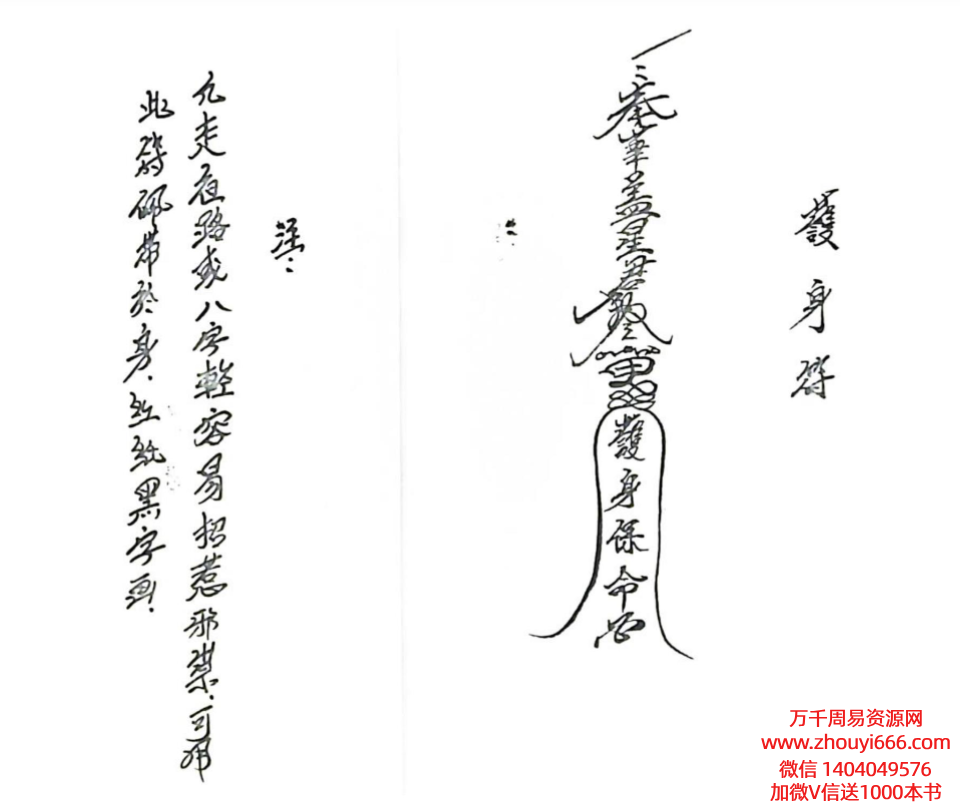 護身符
奉華盖星君敕令
護身保命
凡走夜路或八字輕容易招惹邪祟、可用
此符佩带於身、红纸黑字画、
万千周易资源网
www.zhouyi666.com
微信 1404049576
加微V信送1000本书